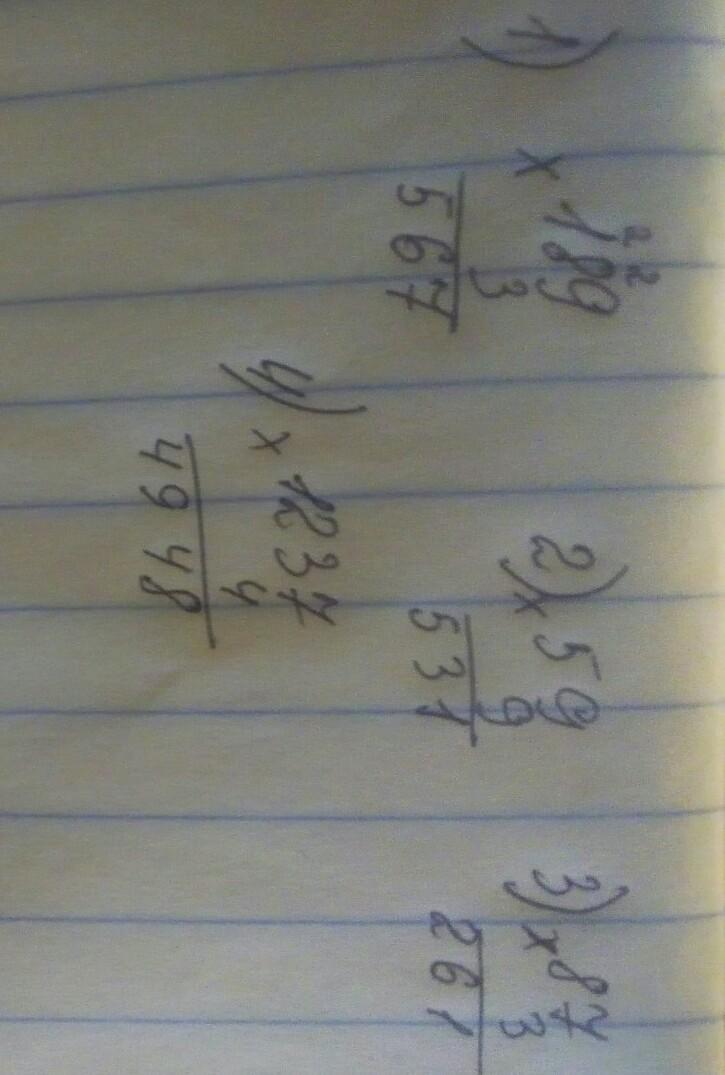 1) 2 2
x 189
3
567
2) x 59
9
531
3) x 87
3
261
4) x 1237
4
4948